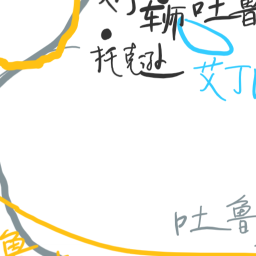 车师
吐鲁
托克逊
艾丁
吐鲁
鱼